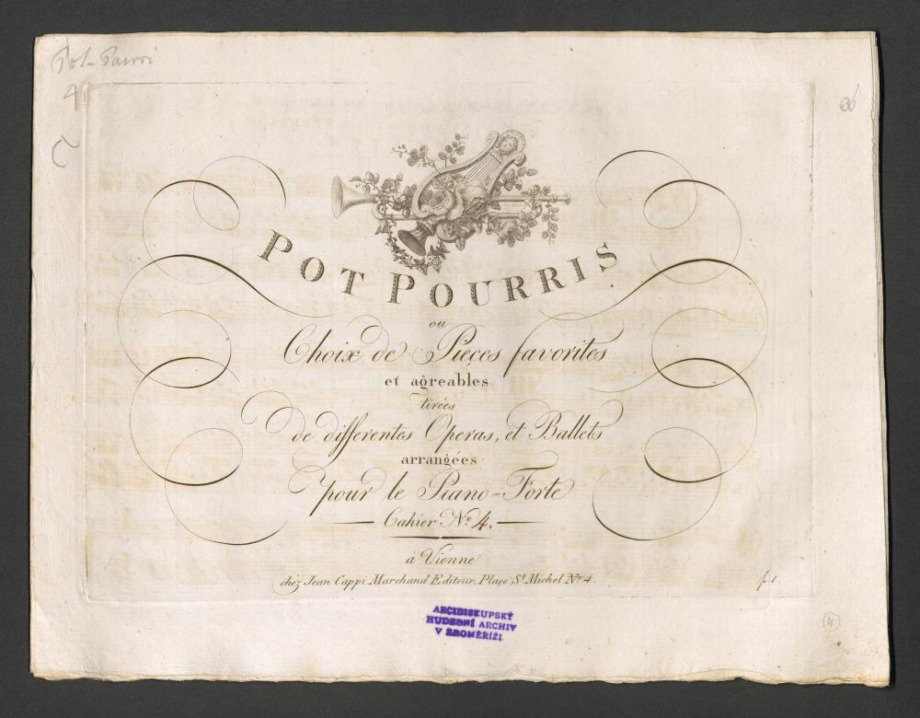 Pot-Pourri
4
26
POT POURRIS
ou
Choix de Pièçes favorites
et agreables
tirées
de differentes Operas, et Ballets
arrangées
pour le Piano-Forte
Cahier No. 4.
à Vienne
chez Jean Cappi Marchand Editeur, Plaçe St. Michel No. 4
ARCIBISKUPSKÝ
HUDEBNÍ ARCHIV
V KROMĚŘÍŽI